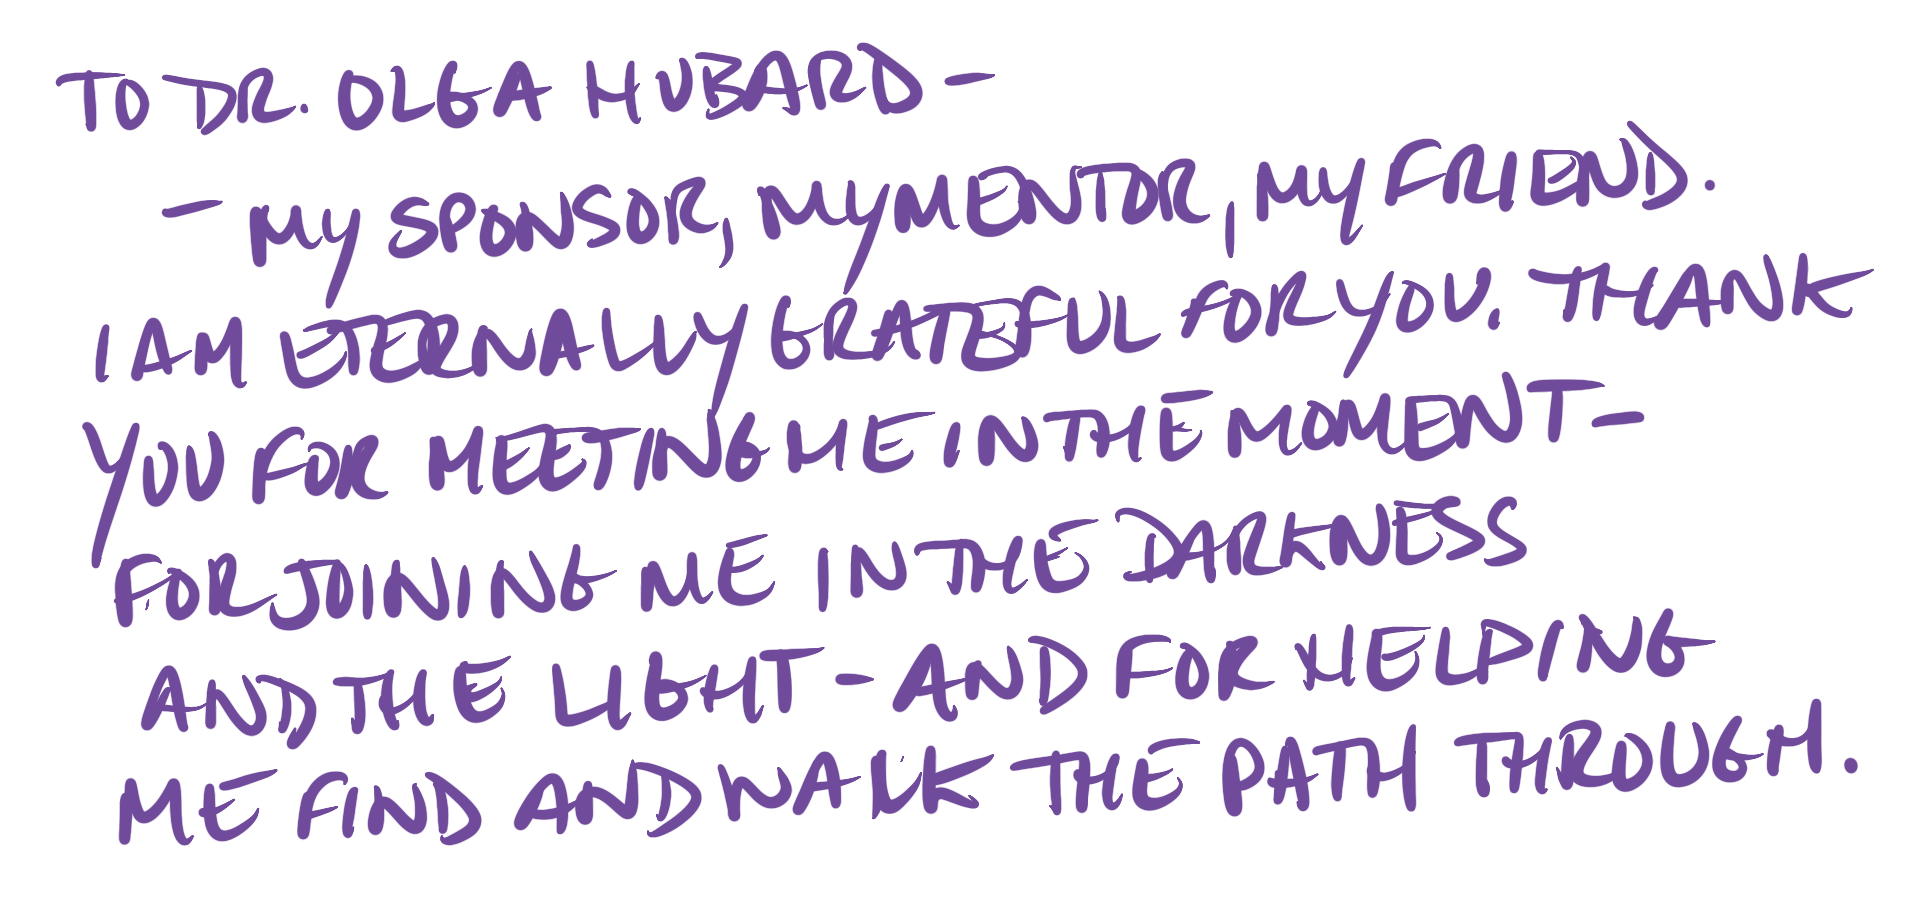 TO DR. OLGA HUBARD –
– MY SPONSOR, MY MENTOR, MY FRIEND.
I AM ETERNALLY GRATEFUL FOR YOU. THANK
YOU FOR MEETING ME IN THE MOMENT –
FOR JOINING ME IN THE DARKNESS
AND THE LIGHT – AND FOR HELPING
ME FIND AND WALK THE PATH THROUGH.